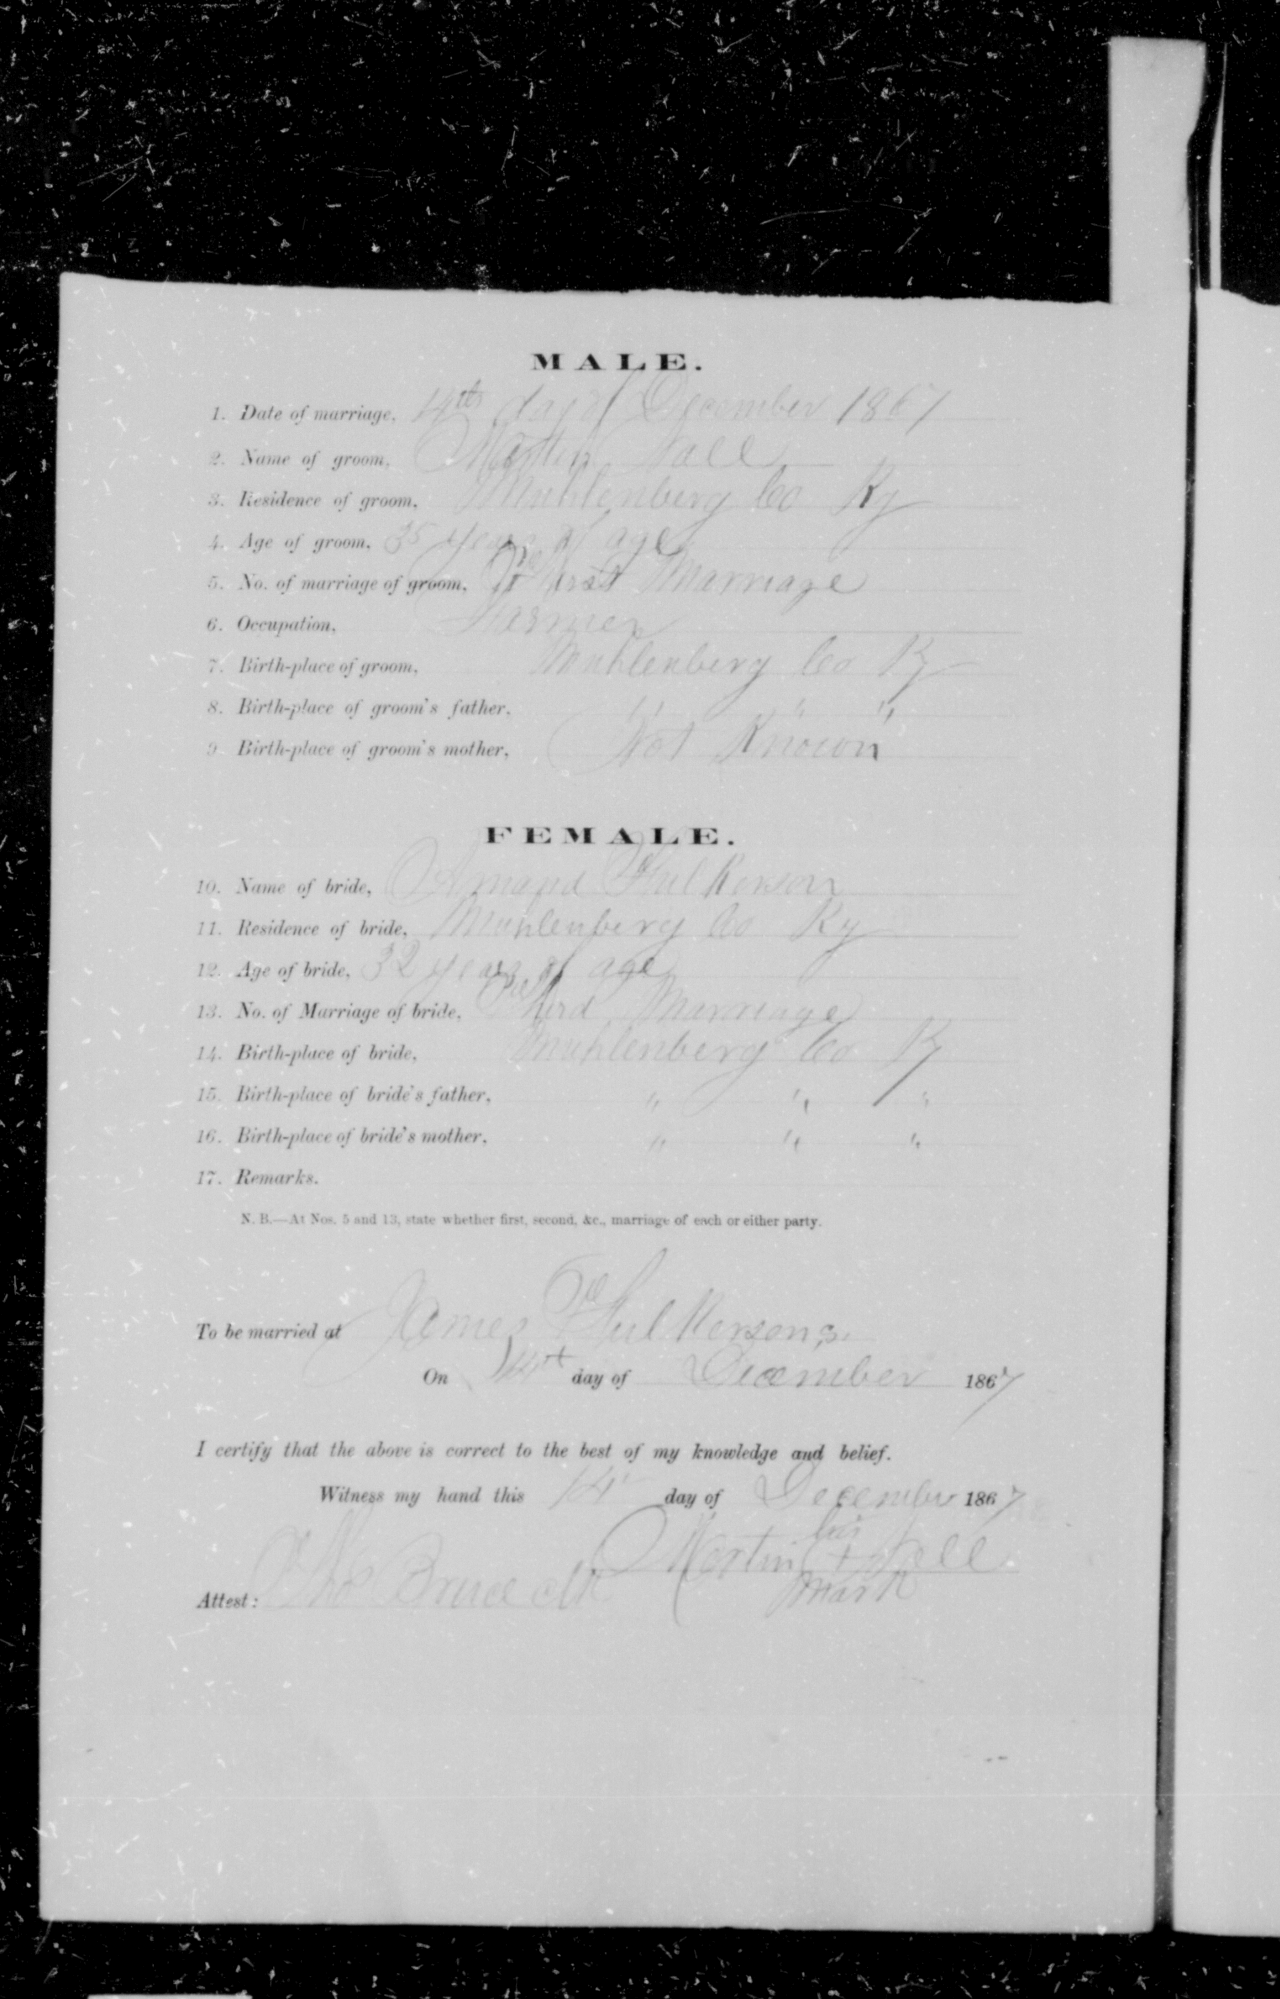 MALE.
1. Date of marriage, 14th day of December 1867
2. Name of groom, Martin
3. Residence of groom, Muhlenberg Co Ky
4. Age of groom, 35 years of age
5. No. of marriage of groom, first Marriage
6. Occupation, Farmer
7. Birth-place of groom, Muhlenberg Co Ky
8. Birth-place of groom's father, " " "
9. Birth-place of groom's mother, Not Known
FEMALE.
10. Name of bride, Amand Fulkerson
11. Residence of bride, Muhlenberg Co Ky
12. Age of bride, 32 years of age
13. No. of Marriage of bride, Third Marriage
14. Birth-place of bride, Muhlenberg Co Ky
15. Birth-place of bride's father, " " "
16. Birth-place of bride's mother, " " "
17. Remarks.
N. B.—At Nos. 5 and 13, state whether first, second, &c., marriage of each or either party.
To be married at James Fulkersons
On 14 day of December 1867
I certify that the above is correct to the best of my knowledge and belief.
Witness my hand this 14 day of December 1867
his
Martin +
mark
Attest: Tho Bruce clk